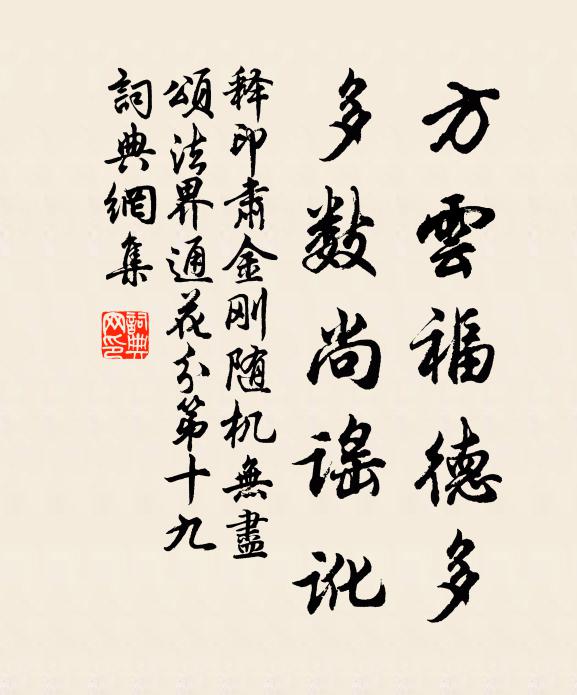 方雲福德多
多數尚謠訛
释印肃金刚随机無盡
頌法界通花分第十九
詞典網集
詞典
网印